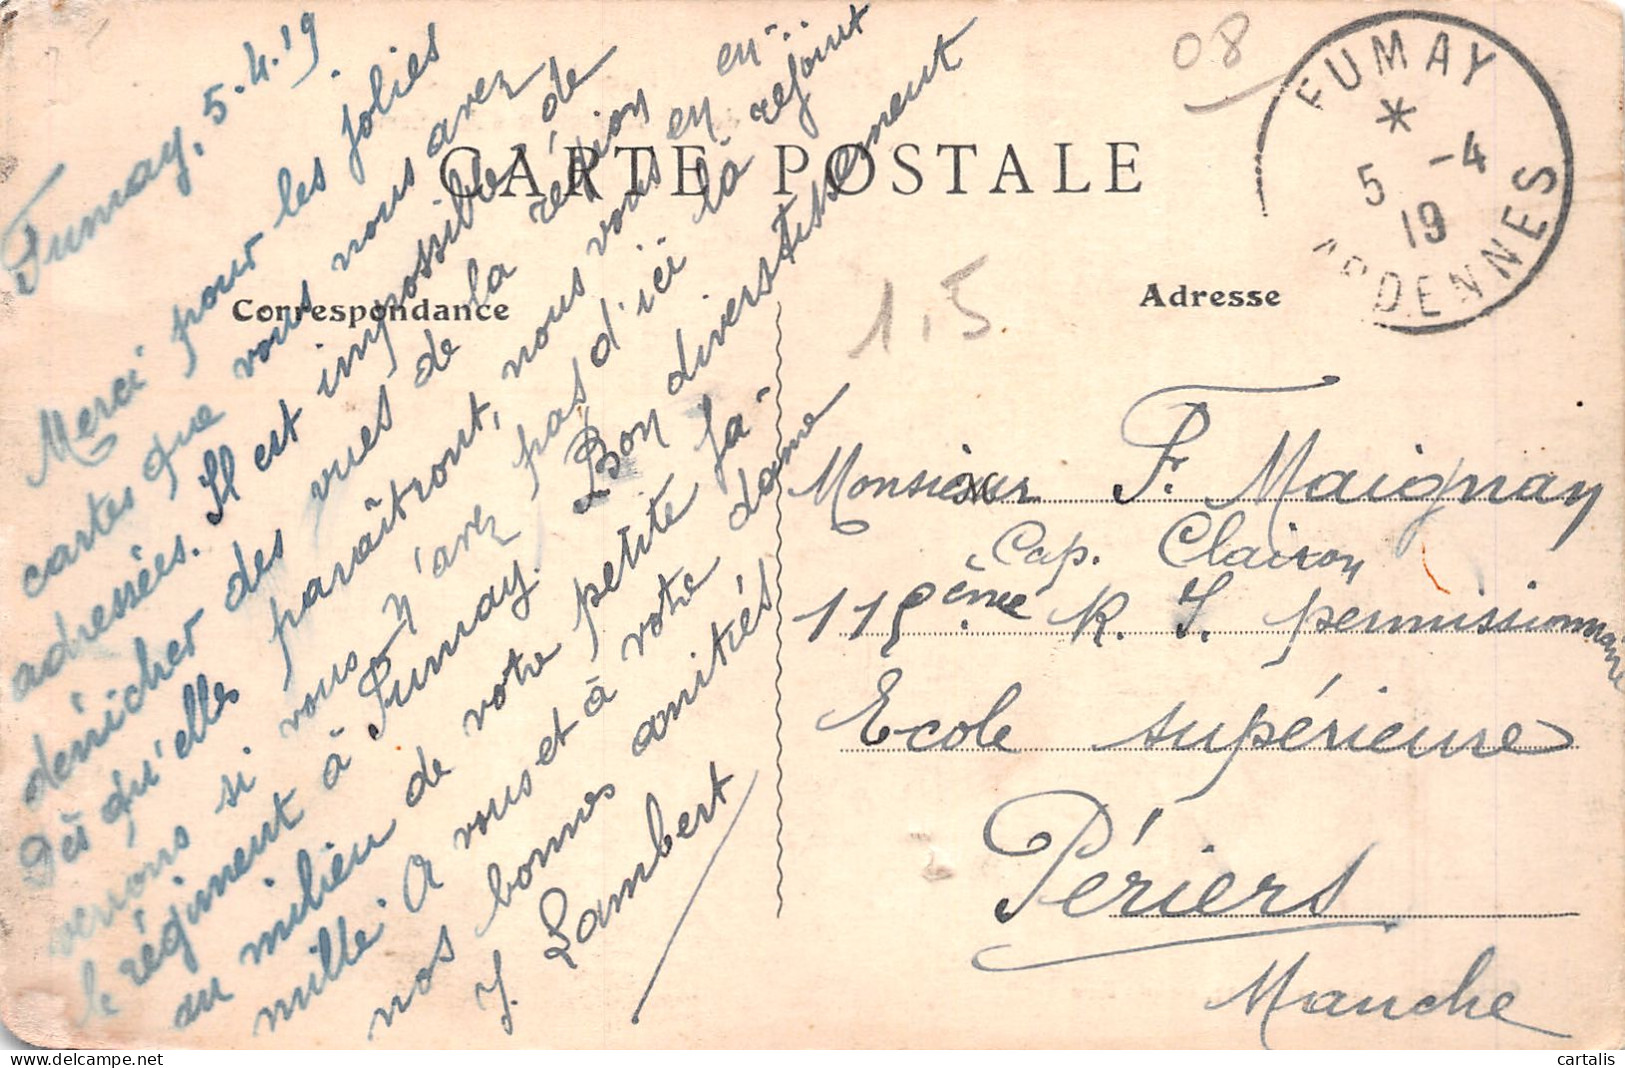 Fumay, 5.4.19.
Merci pour les jolies
cartes que vous nous avez
adressées. Il est impossible de
dénicher des vues de la région
Dès qu'elles paraîtront, nous vous en en-
verrons si vous n'avez pas d'ici là rejoint
le régiment à Fumay. Bon divertissement
au milieu de votre petite fa-
mille. A vous et à votre dame
nos bonnes amitiés
J. Lambert
CARTE POSTALE
Correspondance
Adresse
08
1,5
FUMAY
*
5 -4
19
ARDENNES
Monsieur F. Maignan
Cap. Clairon
R. I. permissionnaire
Ecole supérieure
Périers
Manche
cartalis